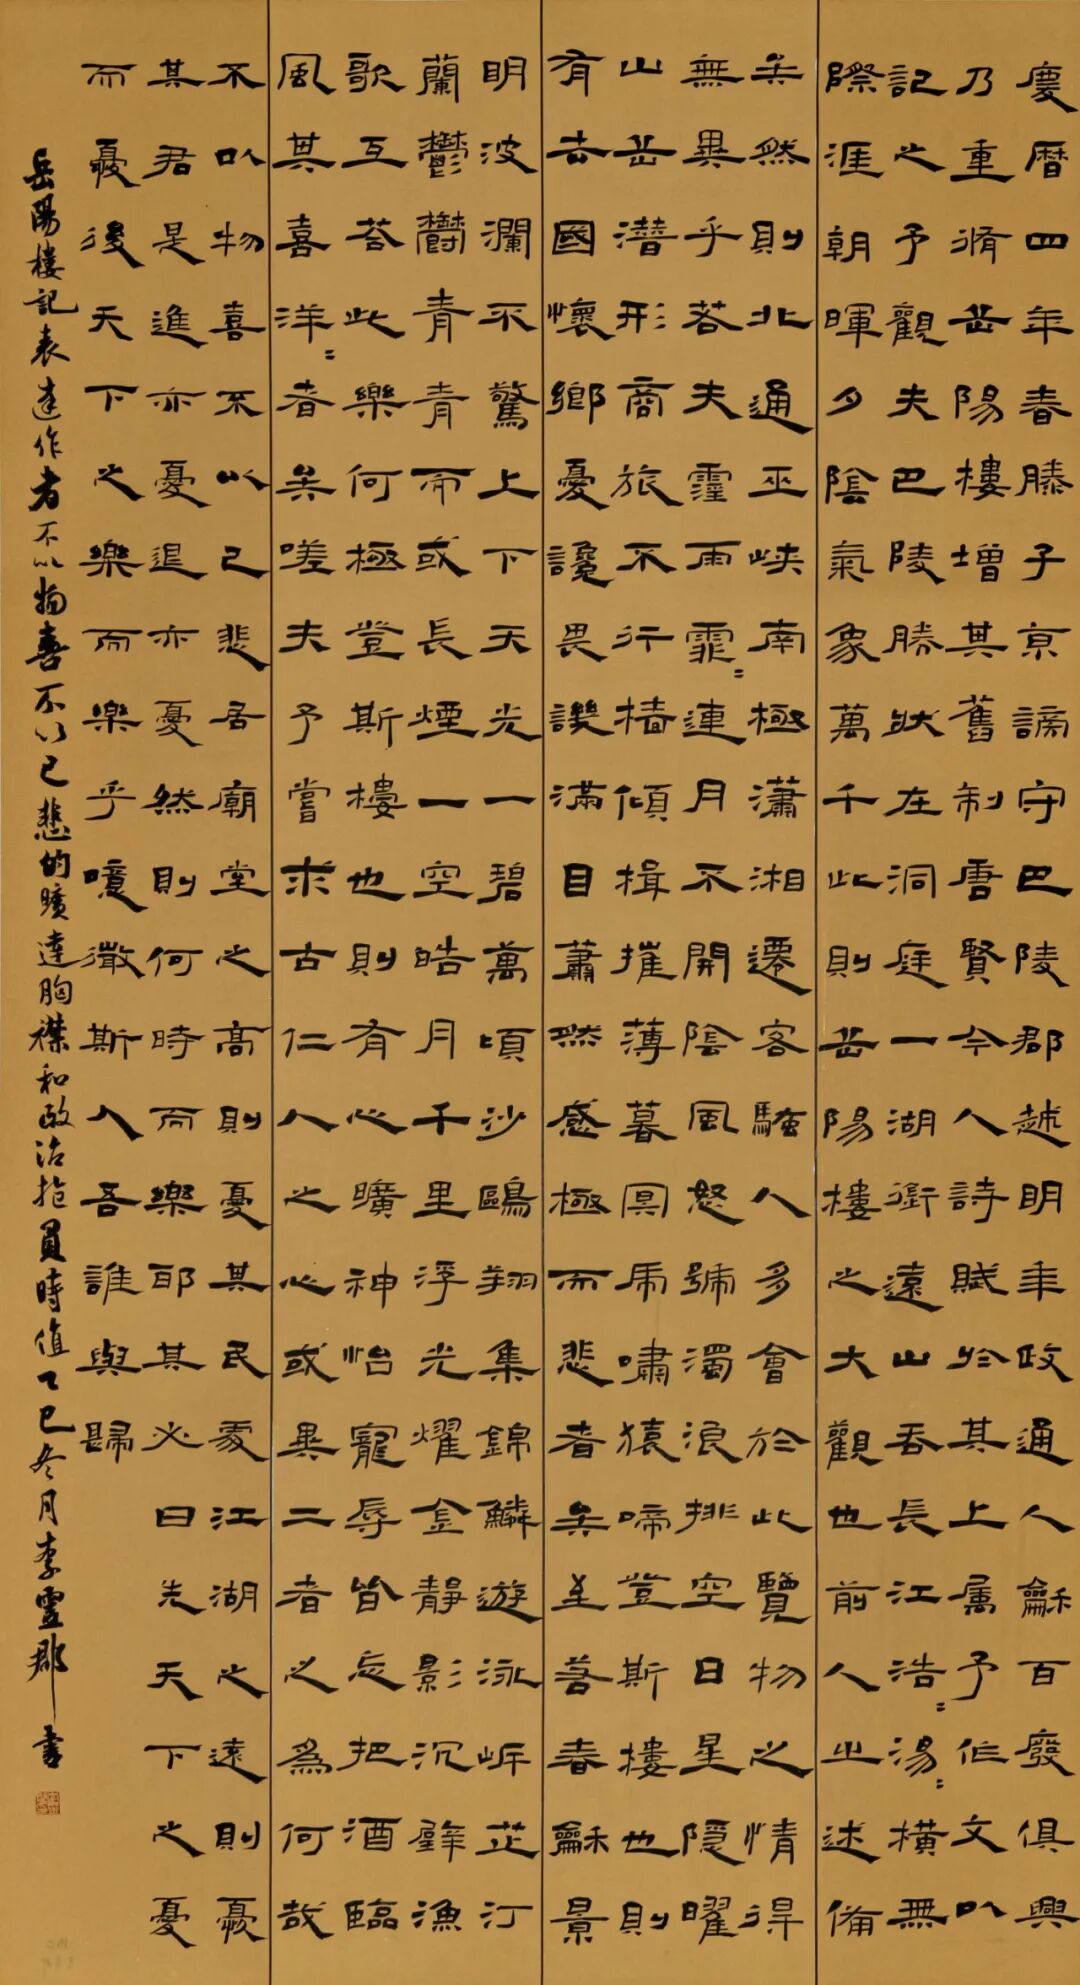 慶曆四年春滕子京謫守巴陵郡越明年政通人龢百廢俱興
乃重脩岳陽樓增其舊制唐賢今人詩賦於其上属予作文以
記之予觀夫巴陵勝狀在洞庭一湖銜遠山吞長江浩〻湯〻橫無
際涯朝暉夕陰氣象萬千此則岳陽樓之大觀也前人之述備
矣然則北通巫峽南極瀟湘遷客騷人多會於此覽物之情得
無異乎若夫霪雨霏〻連月不開陰風怒號濁浪排空日星隱曜
山岳潛形商旅不行檣傾楫摧薄暮冥虎嘯猿啼登斯樓也則
有去國懷鄉憂讒畏譏滿目蕭然感極而悲者矣至若春龢景
明波瀾不驚上下天光一碧萬頃沙鷗翔集錦鱗遊泳岸芷汀
蘭鬱鬱青青而或長煙一空皓月千里浮光耀金靜影沉璧漁
歌互答此樂何極登斯樓也則有心曠神怡寵辱皆忘把酒臨
風其喜洋〻者矣嗟夫予嘗求古仁人之心或異二者之為何哉
不以物喜不以己悲居廟堂之高則憂其民處江湖之遠則憂
其君是進亦憂退亦憂然則何時而樂耶其必曰先天下之憂
而憂後天下之樂而樂乎噫微斯人吾誰與歸
岳陽樓記表達作者不以物喜不以己悲的曠達胸襟和政治抱負時值乙巳冬月李靈郡書